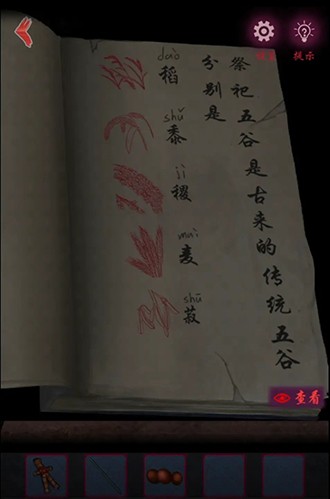 提示
祭祀五谷是古来的传统五谷
分别是
dào
稻
shǔ
黍
jì
稷
mài
麦
shū
菽
查看